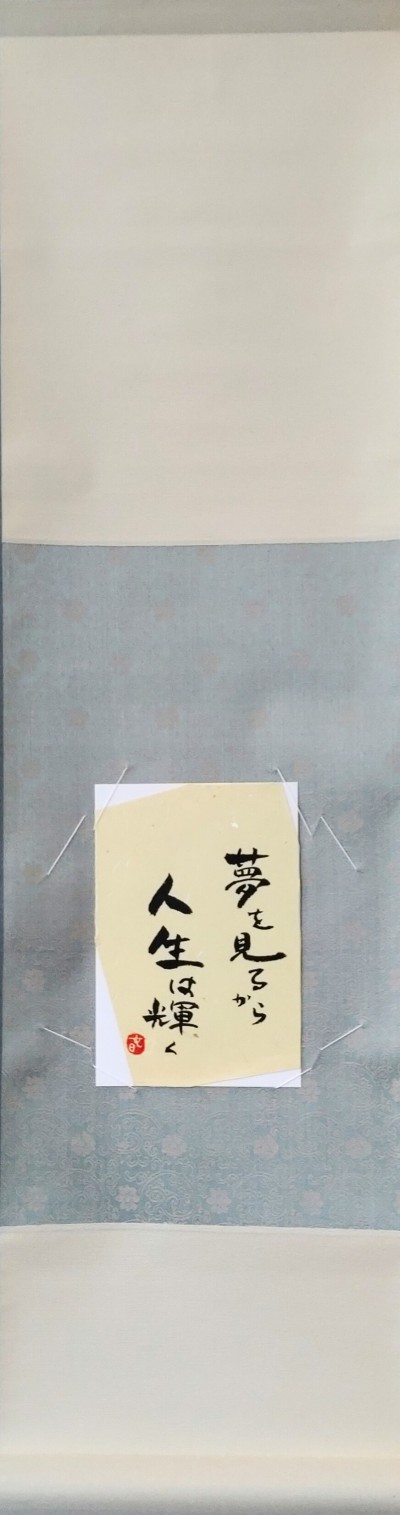 夢を見るから
人生は輝く